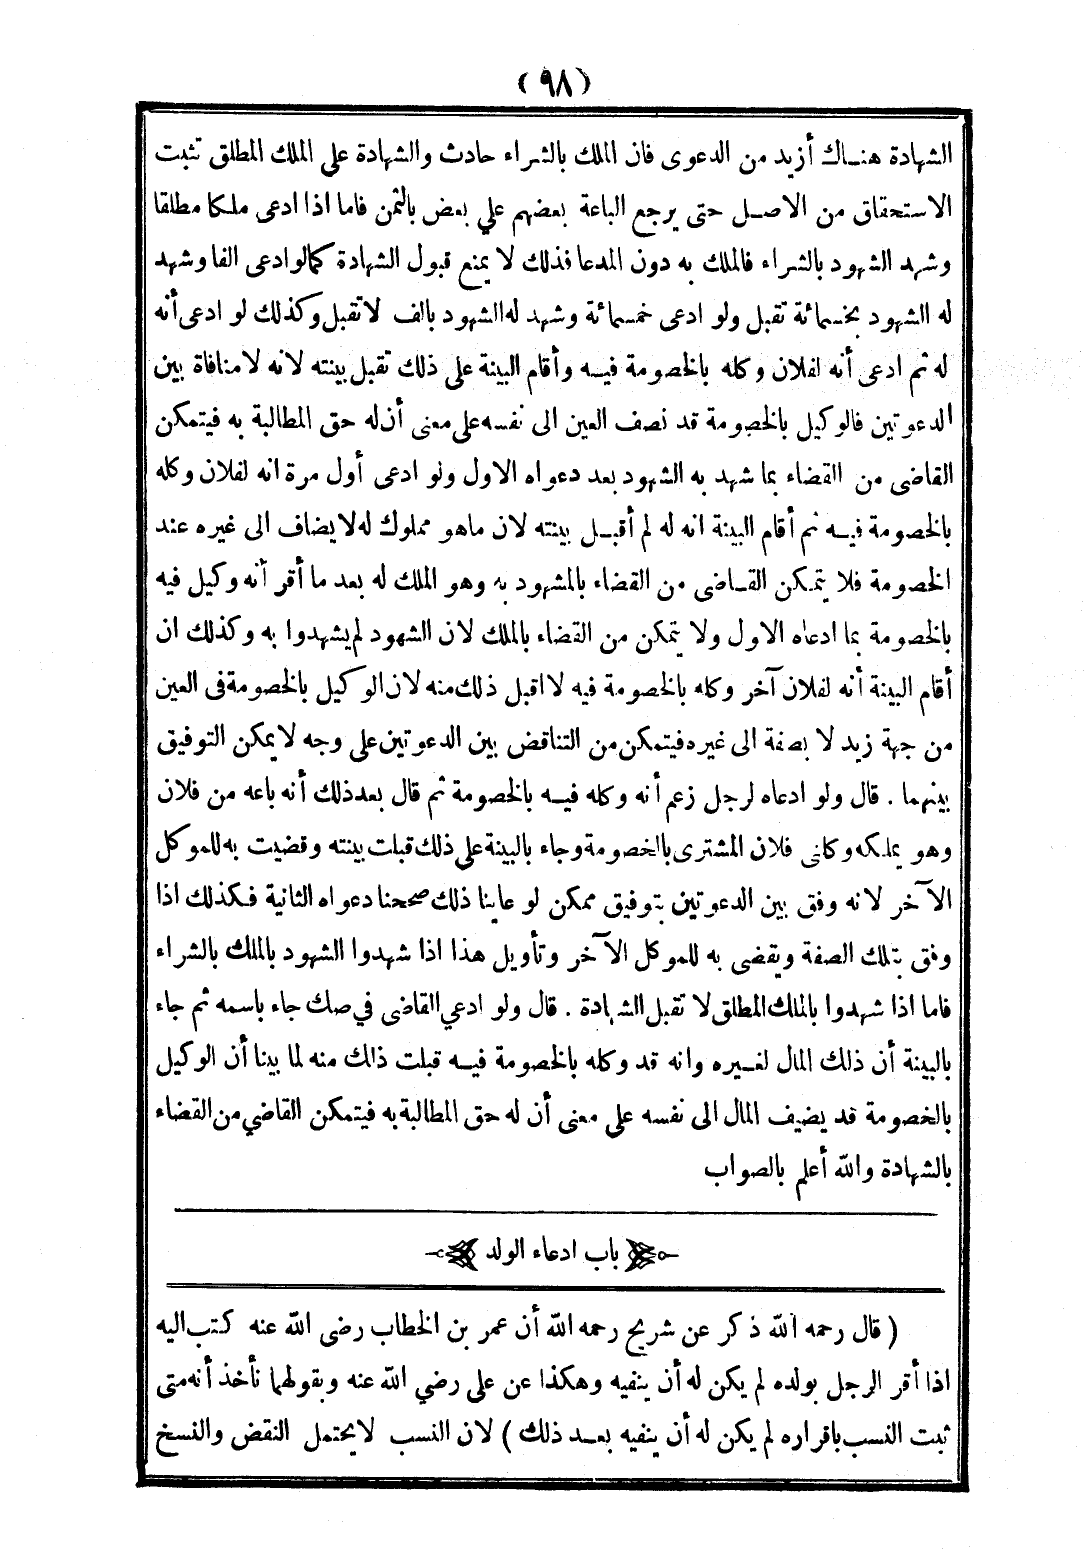 (٩٨)
الشهادة هناك أزيد من الدعوى فان الملك بالشراء حادث والشهادة على الملك المطلق تثبت
الاستحقاق من الاصل حتى يرجع الباعة بعضهم علي بعض بالثمن فاما اذا ادعى ملكا مطلقا
وشهد الشهود بالشراء فالملك به دون المدعا فذلك لا يمنع قبول الشهادة كمالو ادعى الفا وشهد
له الشهود بخمسمائة تقبل ولو ادعى خمسمائة وشهد له الشهود بالف لا تقبل وكذلك لو ادعى أنه
له ثم ادعى أنه لفلان وكله بالخصومة فيه وأقام البينة على ذلك تقبل بينته لانه لا منافاة بين
الدعوتين فالوكيل بالخصومة قد نصف العين الى نفسه على معنى أن له حق المطالبة به فيتمكن
القاضى من القضاء بما شهد به الشهود بعد دعواه الاول ولو ادعى أول مرة انه لفلان وكله
بالخصومة فيه ثم أقام البينة انه له لم أقبل بينته لان ماهو مملوك له لا يضاف الى غيره عند
الخصومة فلا يتمكن القاضى من القضاء بالمشهود به وهو الملك له بعد ما أقر أنه وكيل فيه
بالخصومة بما ادعاه الاول ولا يتمكن من القضاء بالملك لان الشهود لم يشهدوا به وكذلك ان
أقام البينة أنه لفلان آخر وكله بالخصومة فيه لا اقبل ذلك منه لان الوكيل بالخصومة فى العين
من جهة زيد لا بصفة الى غيره فيتمكن من التناقض بين الدعوتين على وجه لا يمكن التوفيق
بينهما . قال ولو ادعاه لرجل زعم أنه وكله فيه بالخصومة ثم قال بعد ذلك أنه باعه من فلان
وهو يملكه وكانى فلان المشترى بالخصومة وجاء بالبينة على ذلك قبلت بينته وقضيت به للموكل
الآخر لانه وفق بين الدعوتين بتوفيق ممكن لو عاينا ذلك صححنا دعواه الثانية فكذلك اذا
وفق بتلك الصفة ويقضى به للموكل الآخر وتأويل هذا اذا شهدوا الشهود بالملك بالشراء
فاما اذا شهدوا بالملك المطلق لا تقبل الشهادة . قال ولو ادعي القاضى في صك جاء باسمه ثم جاء
بالبينة أن ذلك المال لغيره وانه قد وكله بالخصومة فيه قبلت ذالك منه لما بينا أن الوكيل
بالخصومة قد يضيف المال الى نفسه على معنى أن له حق المطالبة به فيتمكن القاضي من القضاء
بالشهادة والله أعلم بالصواب
باب ادعاء الولد
( قال رحمه الله ذكر عن شريح رحمه الله أن عمر بن الخطاب رضى الله عنه كتب اليه
اذا أقر الرجل بولده لم يكن له أن ينفيه وهكذا عن على رضي الله عنه وبقولهما نأخذ أنه متى
ثبت النسب باقراره لم يكن له أن ينفيه بعد ذلك ) لان النسب لا يحتمل النقض والنسخ